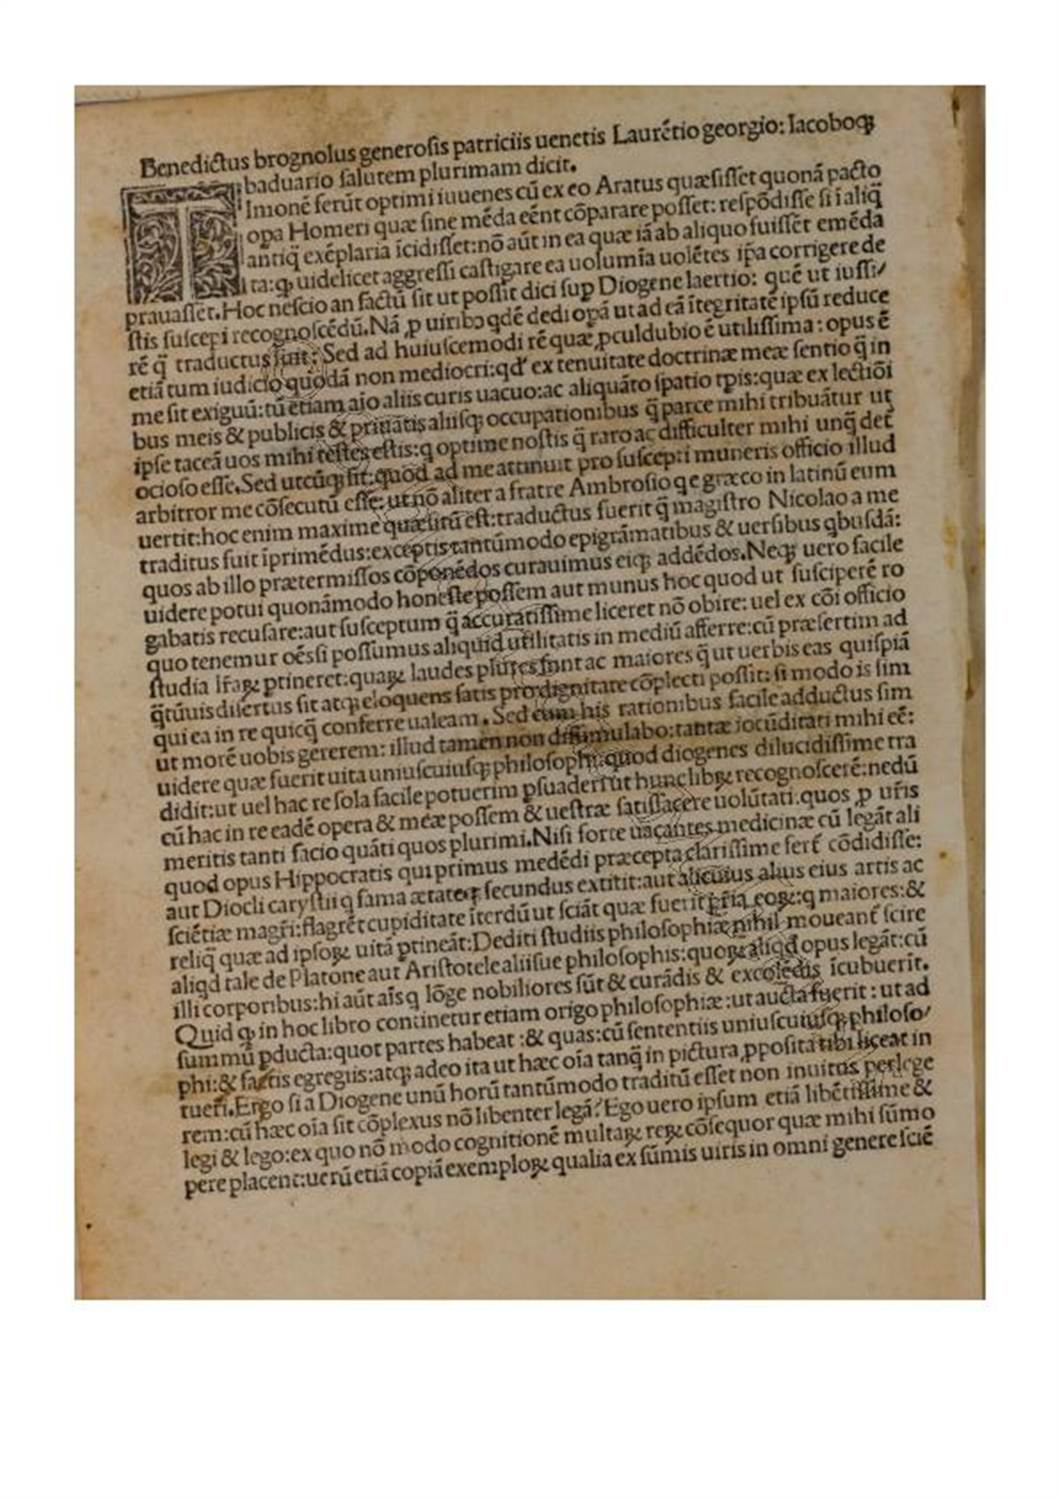 Benedictus brognolus generosis patriciis uenetis Laurētio georgio: Iacoboqꝫ
baduario salutem plurimam dicit.
TImonē ferūt optimi iuuenes cū ex eo Aratus quæsisset quonā pacto
opa Homeri quæ sine mēda eēnt cōparare posset: respōdisse si ī aliq̄
antiq̄ exēplaria īcidisset: nō aūt in ea quæ iā ab aliquo fuissēt emēda
ta: qꝫ uidelicet aggressi castigare ea uolumīa uolētes ip̄a corrigere de
prauasset. Hoc nescio an factū sit ut possit dici sup Diogene laertio: quē ut iussi/
stis suscepi recognoscēdū. Nā ꝑ uiribꝰ qdē dedi opā ut ad eā ītegritatē ipsū reduce
rē q̄ traductus fuit: Sed ad huiuscemodi rē quæ ꝓculdubio ē utilissima: opus ē
etiā tum iudicio quodā non mediocri: qd' ex tenuitate doctrinæ meæ sentio q̄ in
me sit exiguū: tū etiam aīo aliis curis uacuo: ac aliquāto spatio tꝑis: quæ ex lectiōi
bus meis & publicis & priuatis aliisqꝫ occupationibus q̄ parce mihi tribuātur ut
ipse taceā uos mihi testes estis: q optime nostis q̄ raro ac difficulter mihi unq̄ det̄
ocioso esse. Sed utcūqꝫ sit: quod ad me attinuit pro suscepti muneris officio illud
arbitror me cōsecutū esse: ut nō aliter a fratre Ambrosio q e græco in latinū eum
uertit: hoc enim maxime quæsitū est: traductus fuerit q̄ magistro Nicolao a me
traditus fuit īprimēdus: exceptis tantūmodo epigrāmatibus & uersibus qbusdā:
quos ab illo prætermissos cōponēdos curauimus eiqꝫ addēdos. Neqꝫ uero facile
uidere potui quonāmodo honeste possem aut munus hoc quod ut susciperē ro
gabatis recusare: aut susceptum q̄ accuratissime liceret nō obire: uel ex cōi officio
quo tenemur oēs si possumus aliquid utilitatis in mediū afferre: cū præsertim ad
studia lr̄aꝝ ꝑtineret: quaꝝ laudes plures sunt ac maiores q̄ ut uerbis eas quispiā
q̄tūuis disertus sit atqꝫ eloquens satis pro dignitate cōplecti possit: si modo is sim
qui ea in re quicq̄ conferre ualeam. Sed cum his rationibus facile adductus sim
ut morē uobis gererem: illud tamen non dissimulabo: tantæ iocūditati mihi eē:
uidere quæ fuerit uita uniuscuiusqꝫ philosophi: quod diogenes dilucidissime tra
didit: ut uel hac re sola facile potuerim ꝑsuaderi ut hunc libꝝ recognoscerē: nedū
cū hac in re eadē opera & meæ possem & uestræ satisfacere uolūtati. quos ꝓ ur̄is
meritis tanti facio quāti quos plurimi. Nisi forte uacantes medicinæ cū legāt ali
quod opus Hippocratis qui primus medēdi præcepta clarissime fert̄ cōdidisse:
aut Diocli carystii q fama ætateqꝫ secundus extitit: aut alicuius alius eius artis ac
sciētiæ magr̄i: flagrēt cupiditate īterdū ut sciāt quæ fuerit pr̄ia eoꝝ: q maiores: &
reliq quæ ad ipsoꝝ uitā ꝑtineāt: Dediti studiis philosophiæ nihil moueant̄ scire
aliqd tale de Platone aut Aristotele aliisue philosophis: quoꝝ aliqd opus legāt: cū
illi corporibus: hi aūt aīs q lōge nobiliores sūt & curādis & excolēdis īcubuerīt.
Quid qꝫ in hoc libro continetur etiam origo philosophiæ: ut aucta fuerit: ut ad
summū ꝑducta: quot partes habeat: & quas: cū sententiis uniuscuiusqꝫ philoso/
phi: & factis egregiis: atqꝫ adeo ita ut hæc oīa tanq̄ in pictura ꝓposita tibi liceat in
tueri. Ergo si a Diogene unū horū tantūmodo traditū esset non inuitus perlege
rem: cū hæc oīa sit cōplexus nō libenter legā? Ego uero ipsum etiā libētissime &
legi & lego: ex quo nō modo cognitionē multaꝝ reꝝ cōsequor quæ mihi sūmo
pere placent: uerū etiā copiā exemploꝝ qualia ex sūmis uiris in omni genere sciē